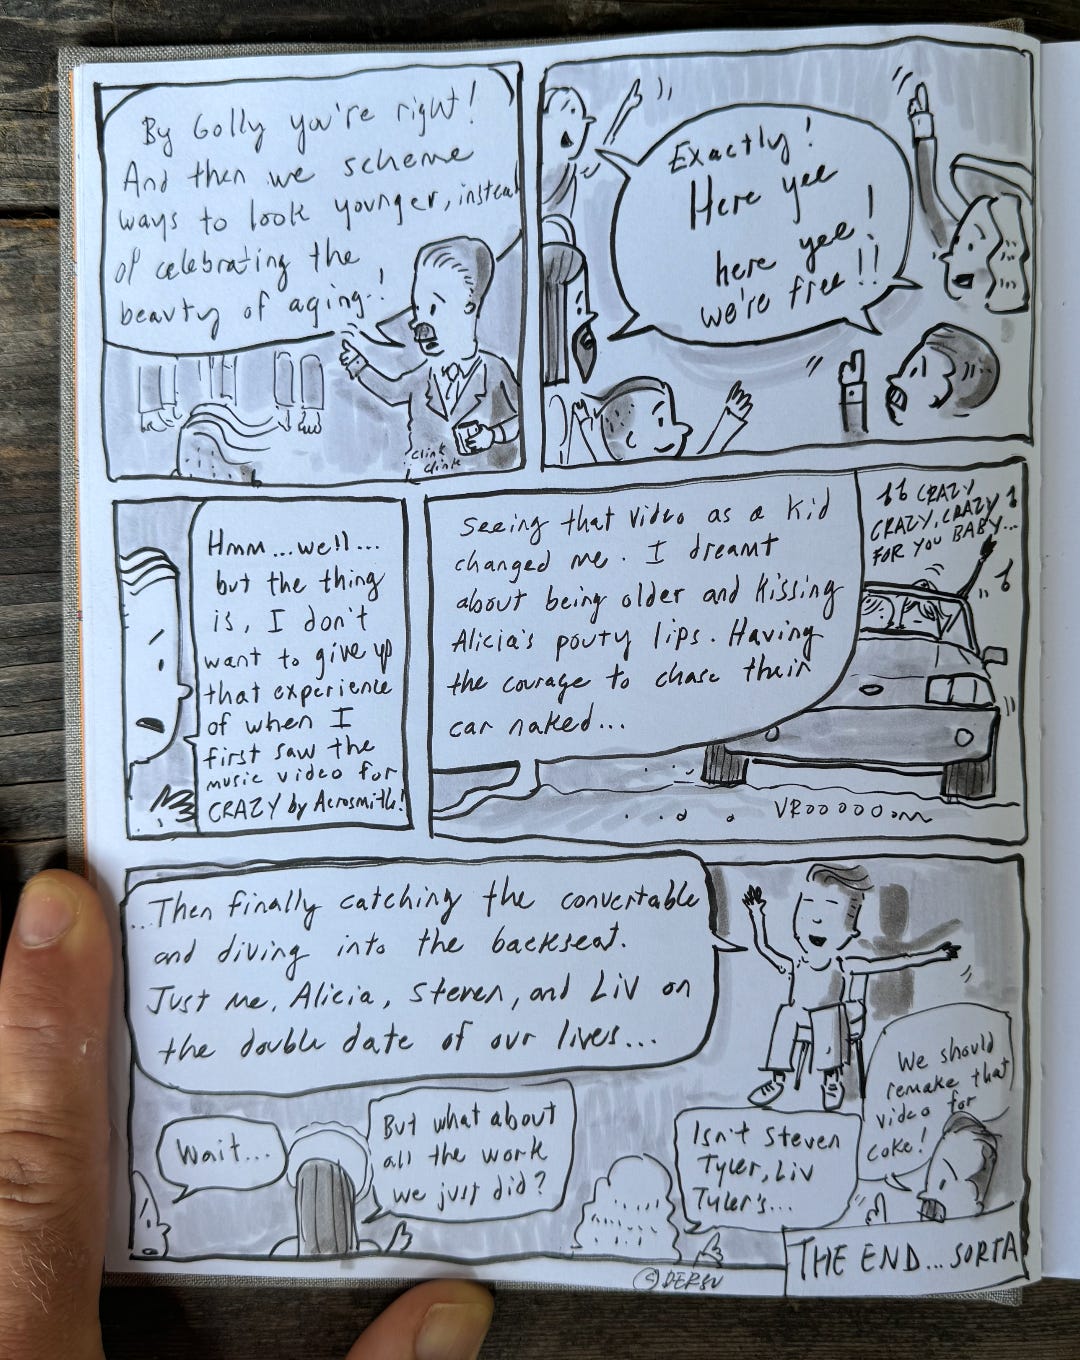 By Golly you're right!
And then we scheme
ways to look younger, instead
of celebrating the
beauty of aging!
Clink
Clink
Exactly!
Here yee
here yee!
we're free!!
Hmm...well...
but the thing
is, I don't
want to give up
that experience
of when I
first saw the
music video for
CRAZY by Aerosmith!
Seeing that video as a kid
changed me. I dreamt
about being older and kissing
Alicia's pouty lips. Having
the courage to chase their
car naked...
CRAZY
CRAZY, CRAZY
FOR YOU BABY...
VROOOOOOM
...Then finally catching the convertable
and diving into the backseat.
Just me, Alicia, Steven, and Liv on
the double date of our lives...
Wait...
But what about
all the work
we just did?
Isn't Steven
Tyler, Liv
Tyler's...
We should
remake that
video for
coke!
THE END...SORTA
© DERSU